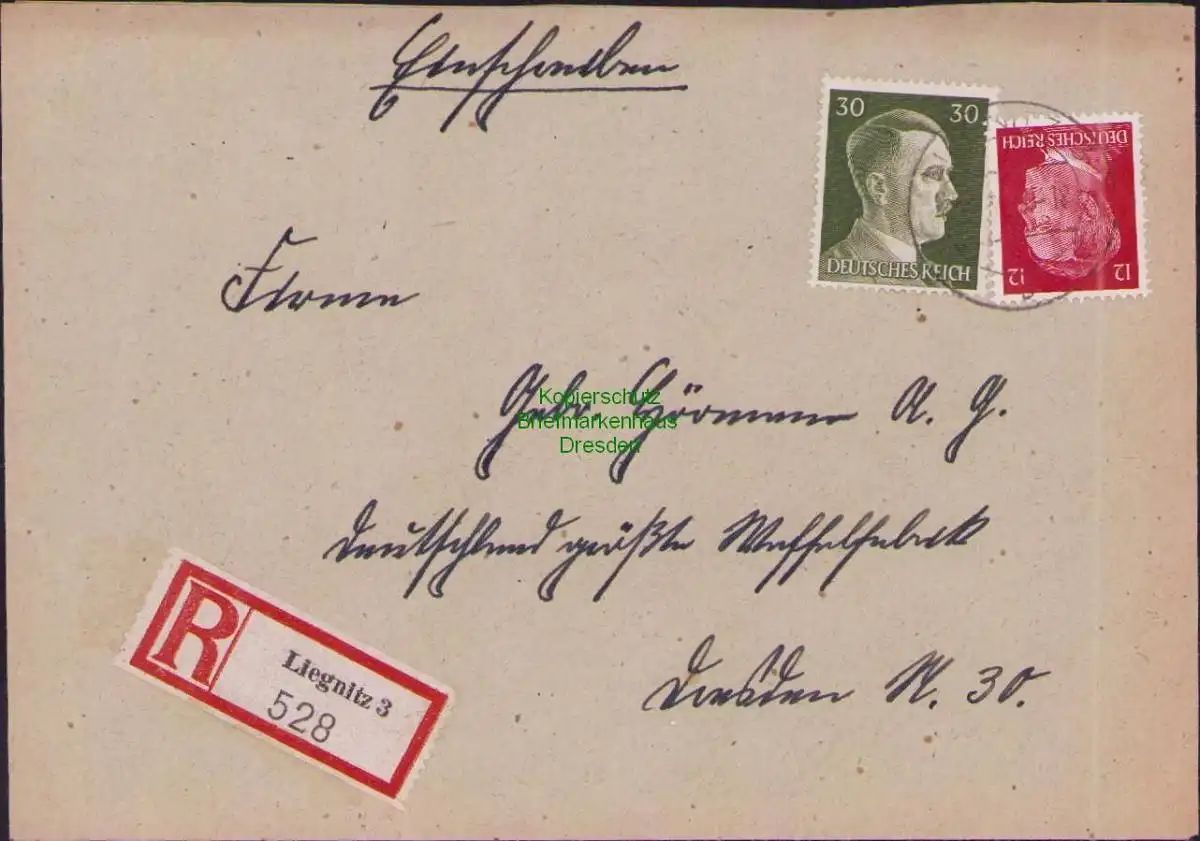 Einschreiben
30 30
DEUTSCHES REICH
DEUTSCHES REICH
12 12
Firma
Gebr. Hörmann A. G.
Kopierschutz
Briefmarkenhaus
Dresden
Deutschland größte Waffelfabrik
Dresden N. 30.
R
Liegnitz 3
528